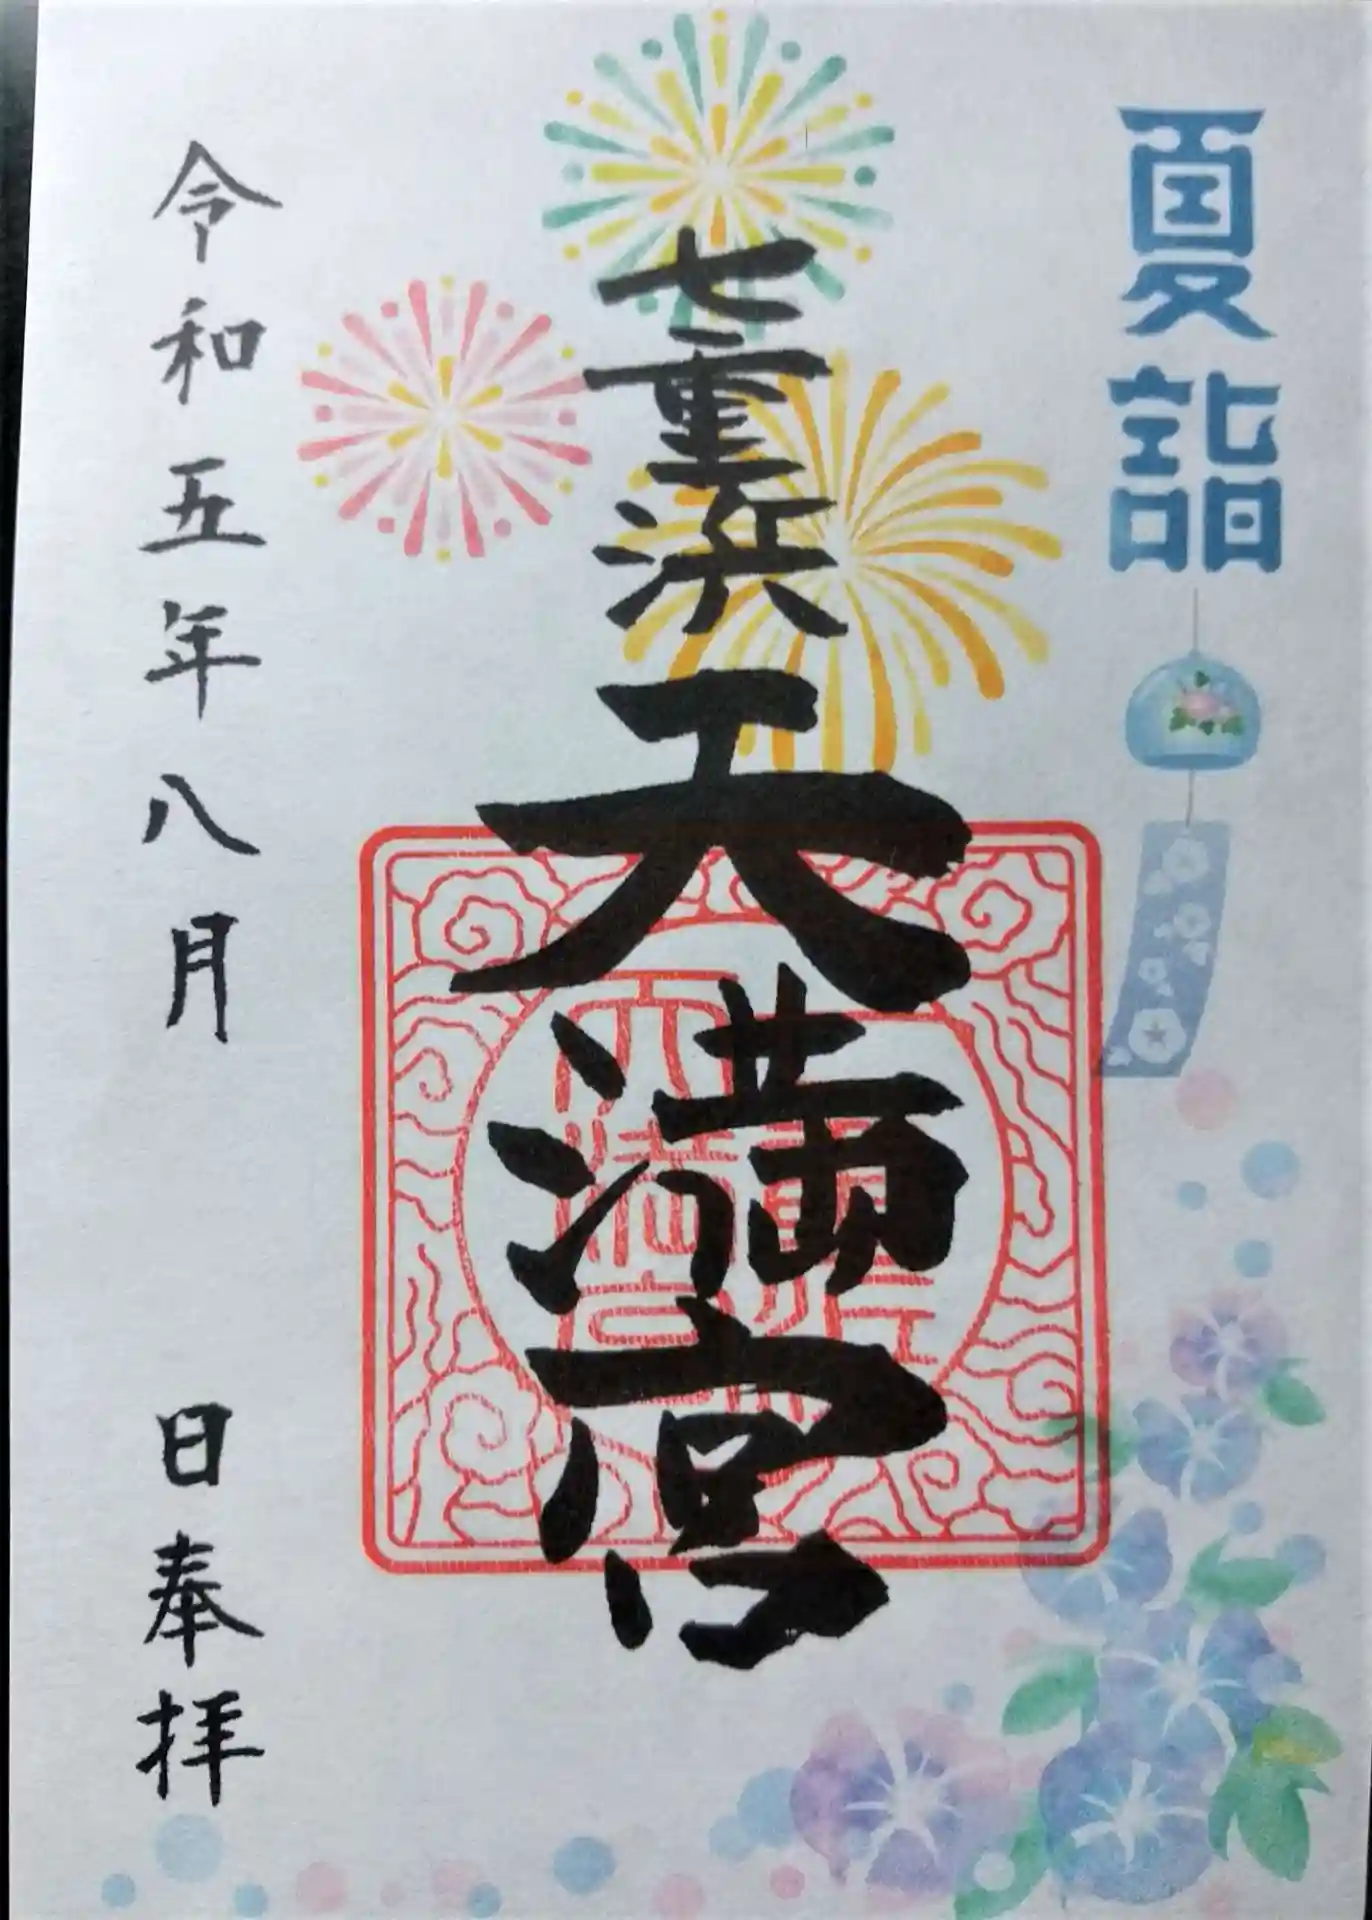 夏詣
七重浜
天満宮
令和五年八月 日奉拝